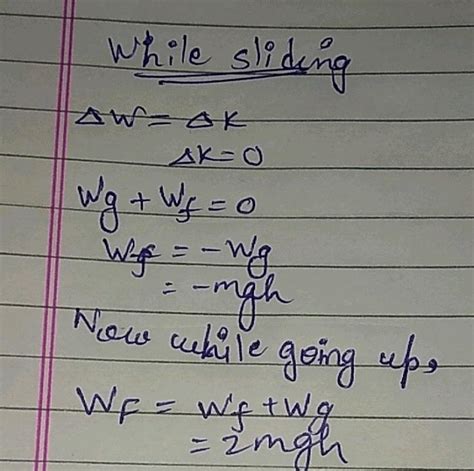 While sliding
ΔW = ΔK
ΔK = 0
Wg + Wf = 0
Wf = -Wg
= -mgh
Now while going up,
WF = Wf + Wg
= 2mgh